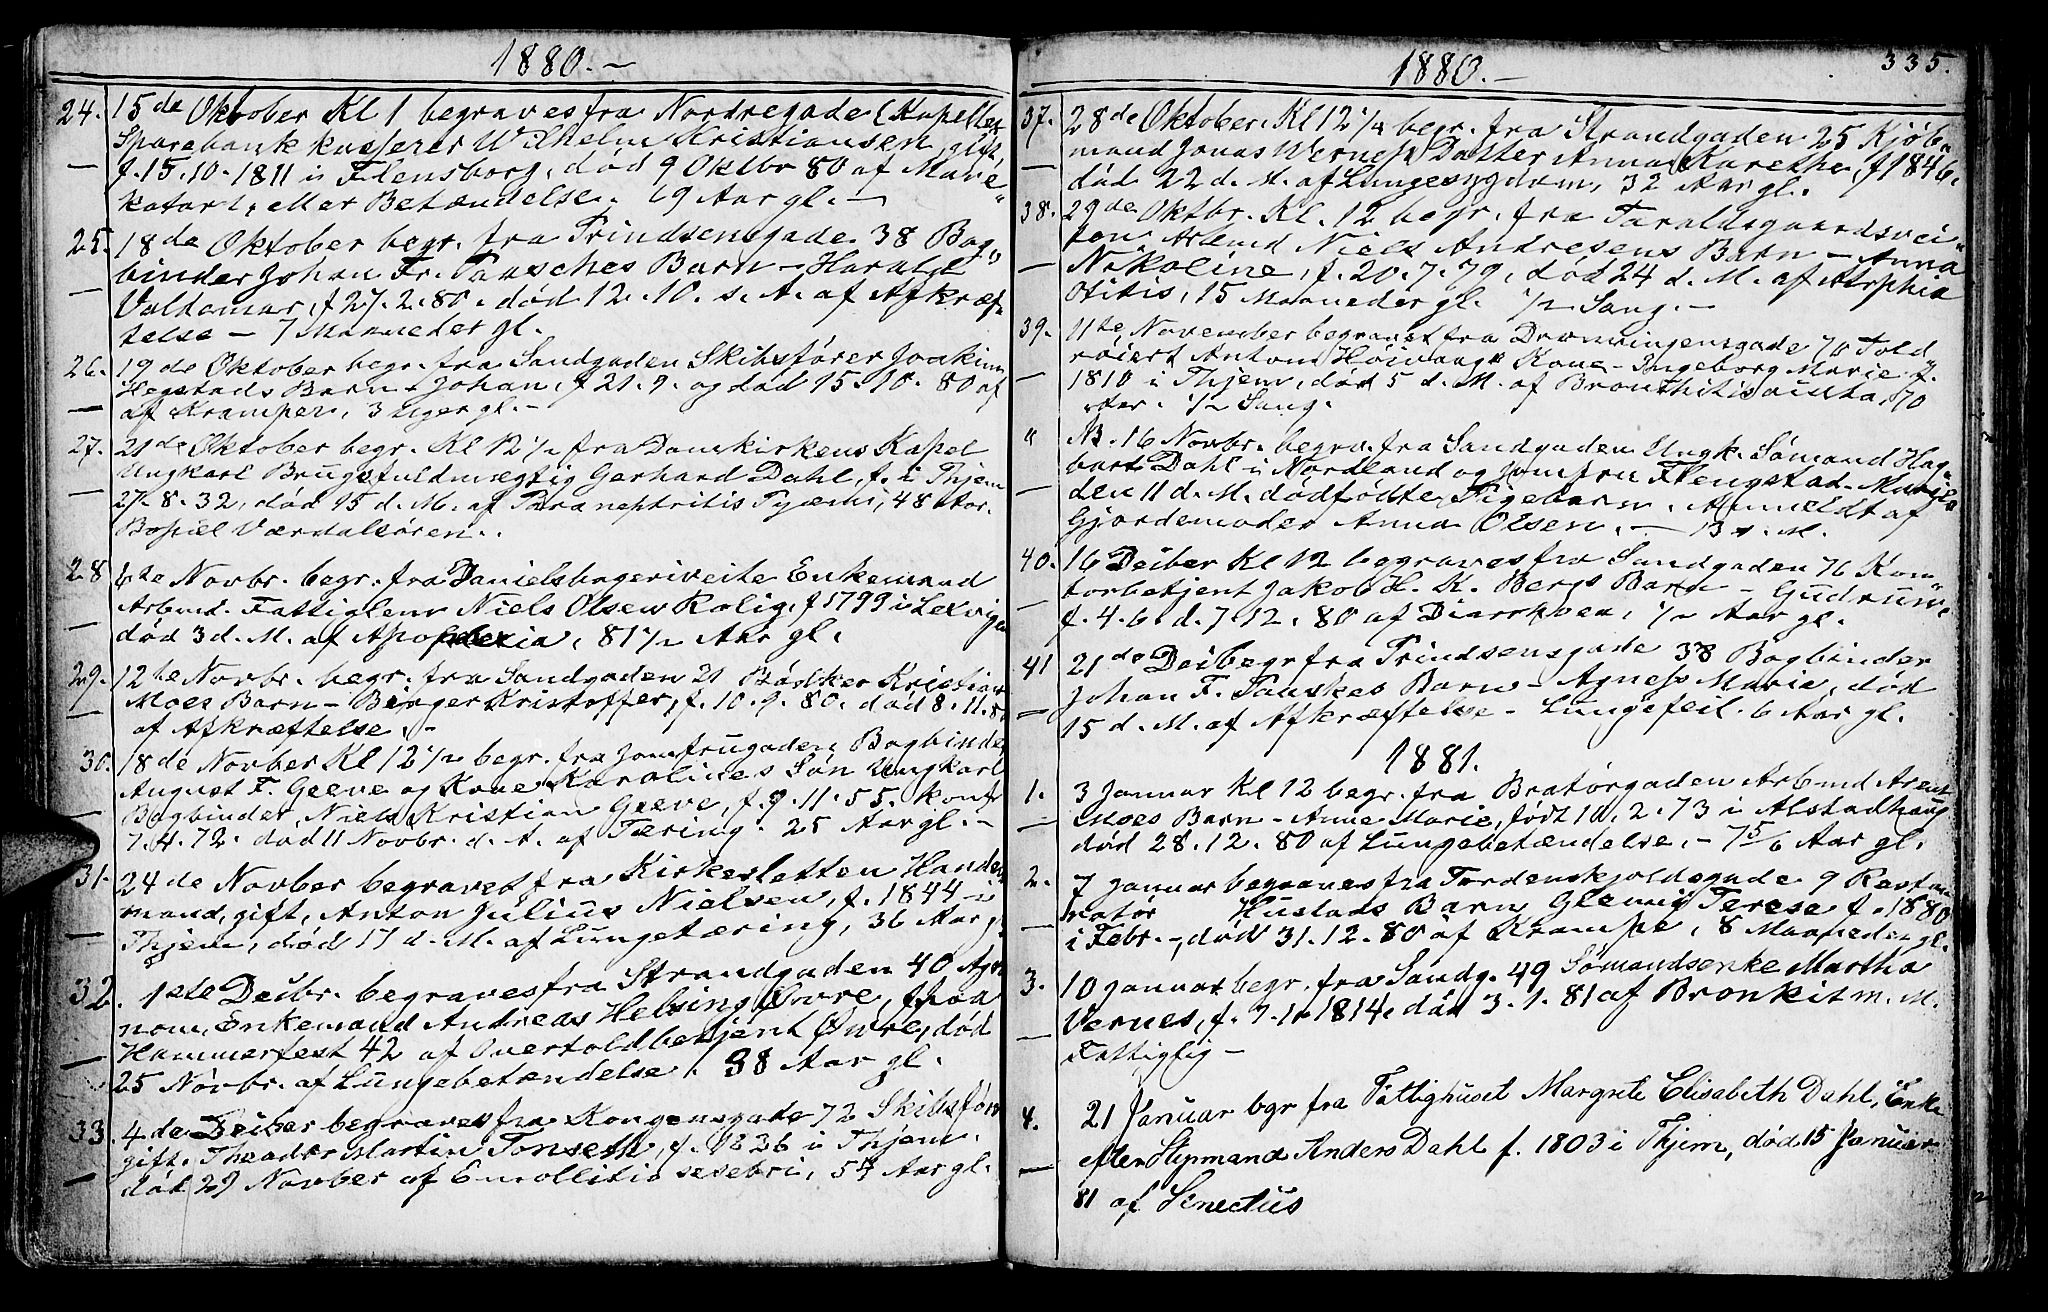 1880.-
24. 15de Oktober Kl 1 begraves fra Nordregade (Kapellet
Sparebankkasserer Wilhelm Kristiansen, gift,
f. 15.10.1811 i Flensborg, død 9 Oktbr 80 af Mave
katarh, eller Betændelse. 69 Aar gl.-
25. 18de Oktober begr. fra Prindsensgade 38 Bog"
binder Johan Fr. Tausches Barn - Harald
Valdemar, f 27.2.80. død 12.10. s. A. af Afkræf"
telse - 7 Maaneder gl.
26. 19de Oktober begr. fra Sandgaden Skibsfører Joakim
Hegstads Barn - Johan, f 21.9. og død 15.10.80 af
af Kramper, 3 Uger gl.-
27. 21de Oktober begr. Kl 12 1/2 fra Domkirkens Kapel
Ungkarl Brugsfuldmægtig Gerhard Dahl, f. i Thjem
27.8.32, død 15 d. M. af Paranephritis Pyæmi, 48 Aar.
Bopæl Værdalsøren.
28 6te Novbr. begr. fra Danielsbageriveite Enkemand
Arbmd. Fattiglem Niels Olsen Rolig, f 1799 i Lexvigen
død 3 d. M. af Apoplexia, 81 1/2 Aar gl.
29. 12te Novbr. begr. fra Sandgaden 21 Bødker Kristian
Moes Barn - Birger Kristoffer, f. 10.9.80. død 8.11.80
af Afkræftelse.-
30. 18de Novber Kl 12 1/2 begr. fra Jomfrugaden Bogbinder
August F. Geeve og Kone Karolines Søn Ungkarl
Bogbinder Niels Kristian Geeve, f. 9.11.55. konf
7.4.72. død 11 Novbr. d. A. af Tæring. 25 Aar gl.-
31. 24de Novber begraves fra Kirkesletten Handels
mand, gift, Anton Julius Nielsen, f. 1844 i
Thjem, død 17 d. M. af Lungetæring, 36 Aar gl.
32. 1ste Decbr. begraves fra Strandgaden 40 Agro
nom, Enkemand Andreas Helsing Øwre, f. fra
Hammerfest 42 af Overtoldbetjent Øwre, død
25 Novbr. af Lungebetændelse. 38 Aar gl.
33. 4de Decber begraves fra Kongensgade 72 Skibsfører
gift. Theodor Martin Tonseth, f. 1826 i Thjem.
død 29 Novber af Emollitio cerebri, 54 Aar gl.
1880.- 335.
37. 28de Oktober. Kl 12 1/4 begr. fra Strandgaden 25 Kjøb"
mand Jonas Werness Datter Anna Karethe, f 1846.
død 22 d. M. af Lungesygdom, 32 Aar gl.
38. 29de Oktbr. Kl. 12 begr. fra Taraldsgaardsvei"
ten Arbmd Niels Andresens Barn - Anna
Nikoline, f. 20.7.79, død 24 d. M. af
Otitis, 15 Maaneder gl. 1/2 Sang.-
39. 11te November begravet fra Dronningensgade 70 Told
roiert Antoni Hoivaags Kone - Ingeborg Marie f.
1810 i Thjem, død 5 d. M. af Bronchitis acuta, 70
Aar. 1/2 Sang.
" NB. 16 Novbr. begrv. fra Sandgaden Ungk. Sømand Hag"
bart Dahl i Nordland og Jomfru Flengstad - Maries
den 11 d. M. dødfødte Pigebarn. Anmeldt af
Gjordemoder Anna Olsen. - 13 d. M.
40. 16 Decber Kl 12 begraves fra Sandgaden 76 Kon"
torbetjent Jakob H. K. Bergs Barn - Gudrun
f. 4.6. d. 7.12.80 af Diarrhoea, 1/2 Aar gl.
41 21de Decbegr fra Prindsensgade 38 Bogbinder
Johan F. Tauskes Barn - Agness Marie, død
15 d. M. af Afkræftelse - Lungefeil. 6 Aar gl.
1881.
1. 3 Januar Kl 12 begr. fra Bratørgaden Arbmd Arent
Moes Barn - Anne Marie, født 10.2.73 i Alstadhaug
død 28.12.80 af Lungebetændelse. - 7 5/6 Aar gl.
2. 7 Januar begraves fra Tordenskjoldsgade 9 Restau
ratør Hustads Barn Terese f. 1880
i Febr. -, død 31.12.80 af Krampe, 8 Maaneder gl.
3. 10 Januar begr. fra Sandg. 49 Sømandsenke Martha
Vernes, f. 7.10.1814. død 3.1.81 af Bronkit m. M.
Fattiglig -
4. 21 Januar bgr fra Fattighuset Margrete Elisabeth Dahl, Enke
efter Slipmand Anders Dahl f. 1803 i Thjem, død 15 Januar
81 af Senectus